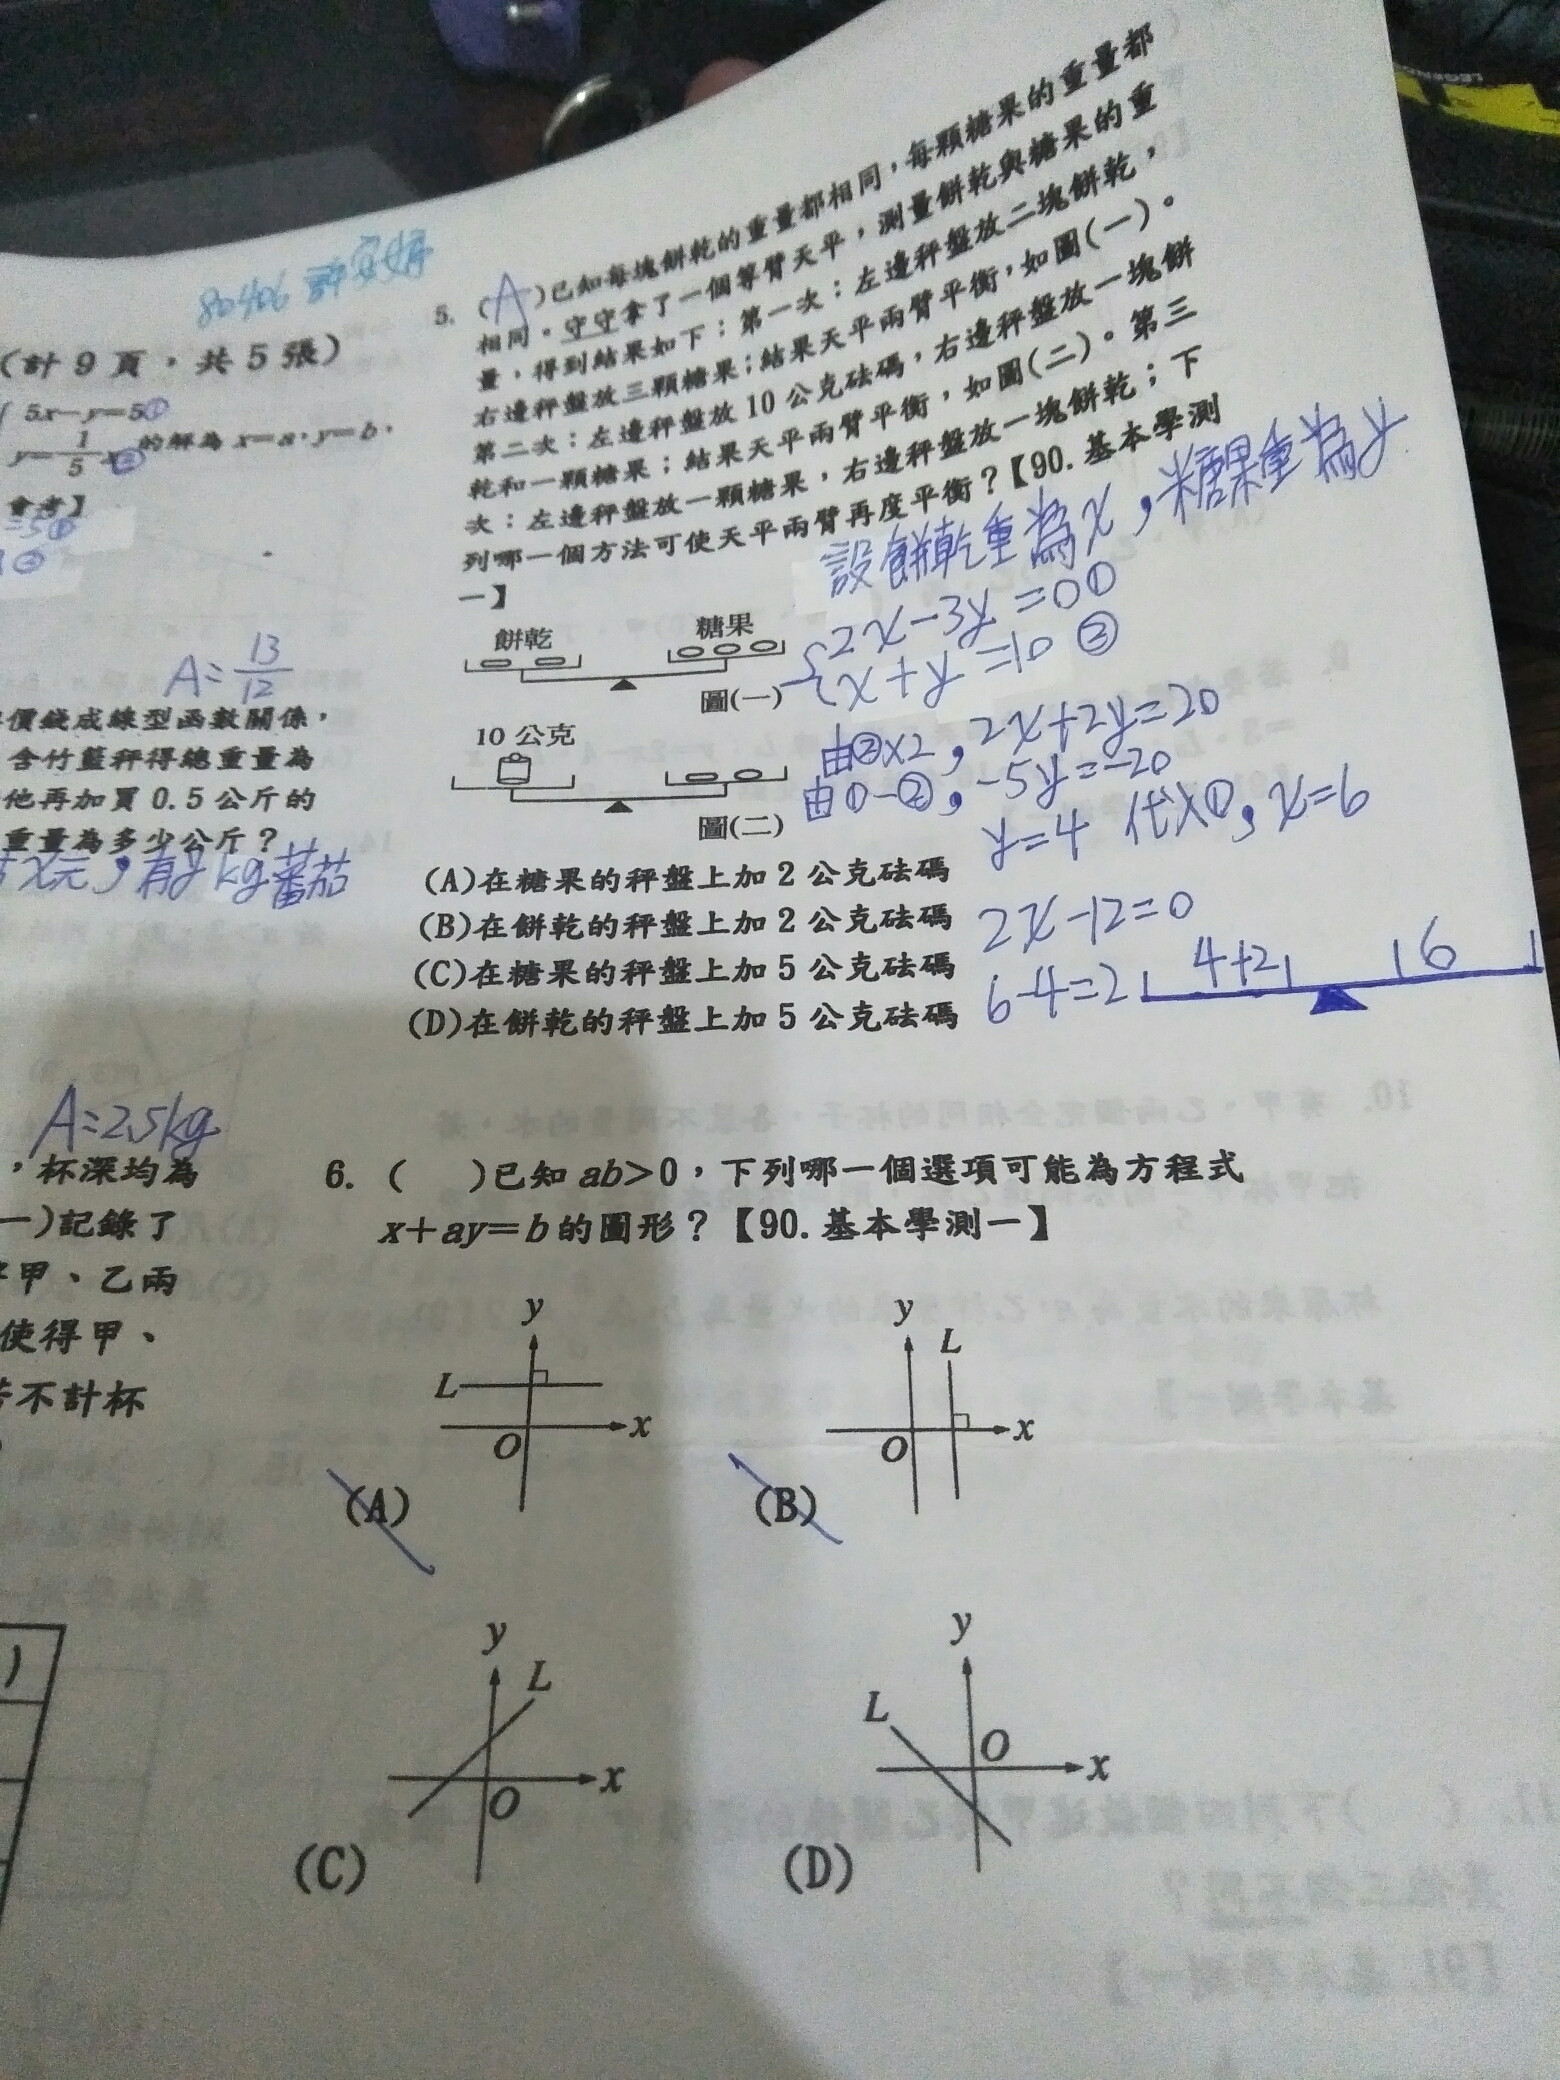 80406
(計9頁,共5張)
5x-y=5①
y=1/5x② 的解為x=a,y=b,
會考】
=5①
②
A=13/12
價錢成線型函數關係,
含竹籃秤得總重量為
他再加買0.5公斤的
重量為多少公斤?
x元,有y kg蕃茄
A=2.5kg
,杯深均為
一)記錄了
甲、乙兩
使得甲、
不計杯
)
5. (A)已知每塊餅乾的重量都相同,每顆糖果的重量都
相同。守守拿了一個等臂天平,測量餅乾與糖果的重
量,得到結果如下:第一次:左邊秤盤放二塊餅乾,
右邊秤盤放三顆糖果;結果天平兩臂平衡,如圖(一)。
第二次:左邊秤盤放10公克砝碼,右邊秤盤放一塊餅
乾和一顆糖果;結果天平兩臂平衡,如圖(二)。第三
次:左邊秤盤放一顆糖果,右邊秤盤放一塊餅乾;下
列哪一個方法可使天平兩臂再度平衡?【90.基本學測
一】
設餅乾重為x,糖果重為y
餅乾 糖果
圖(一)
2x-3y=0①
x+y=10②
10公克
圖(二)
由②×2,2x+2y=20
由①-②,-5y=-20
y=4 代入①,x=6
(A)在糖果的秤盤上加2公克砝碼
(B)在餅乾的秤盤上加2公克砝碼
(C)在糖果的秤盤上加5公克砝碼
(D)在餅乾的秤盤上加5公克砝碼
2x-12=0
6-4=2
4+2 6
6. ( )已知ab>0,下列哪一個選項可能為方程式
x+ay=b的圖形?【90.基本學測一】
y
L
x
O
(A)
y
L
x
O
(B)
y
L
x
O
(C)
y
L
O
x
(D)